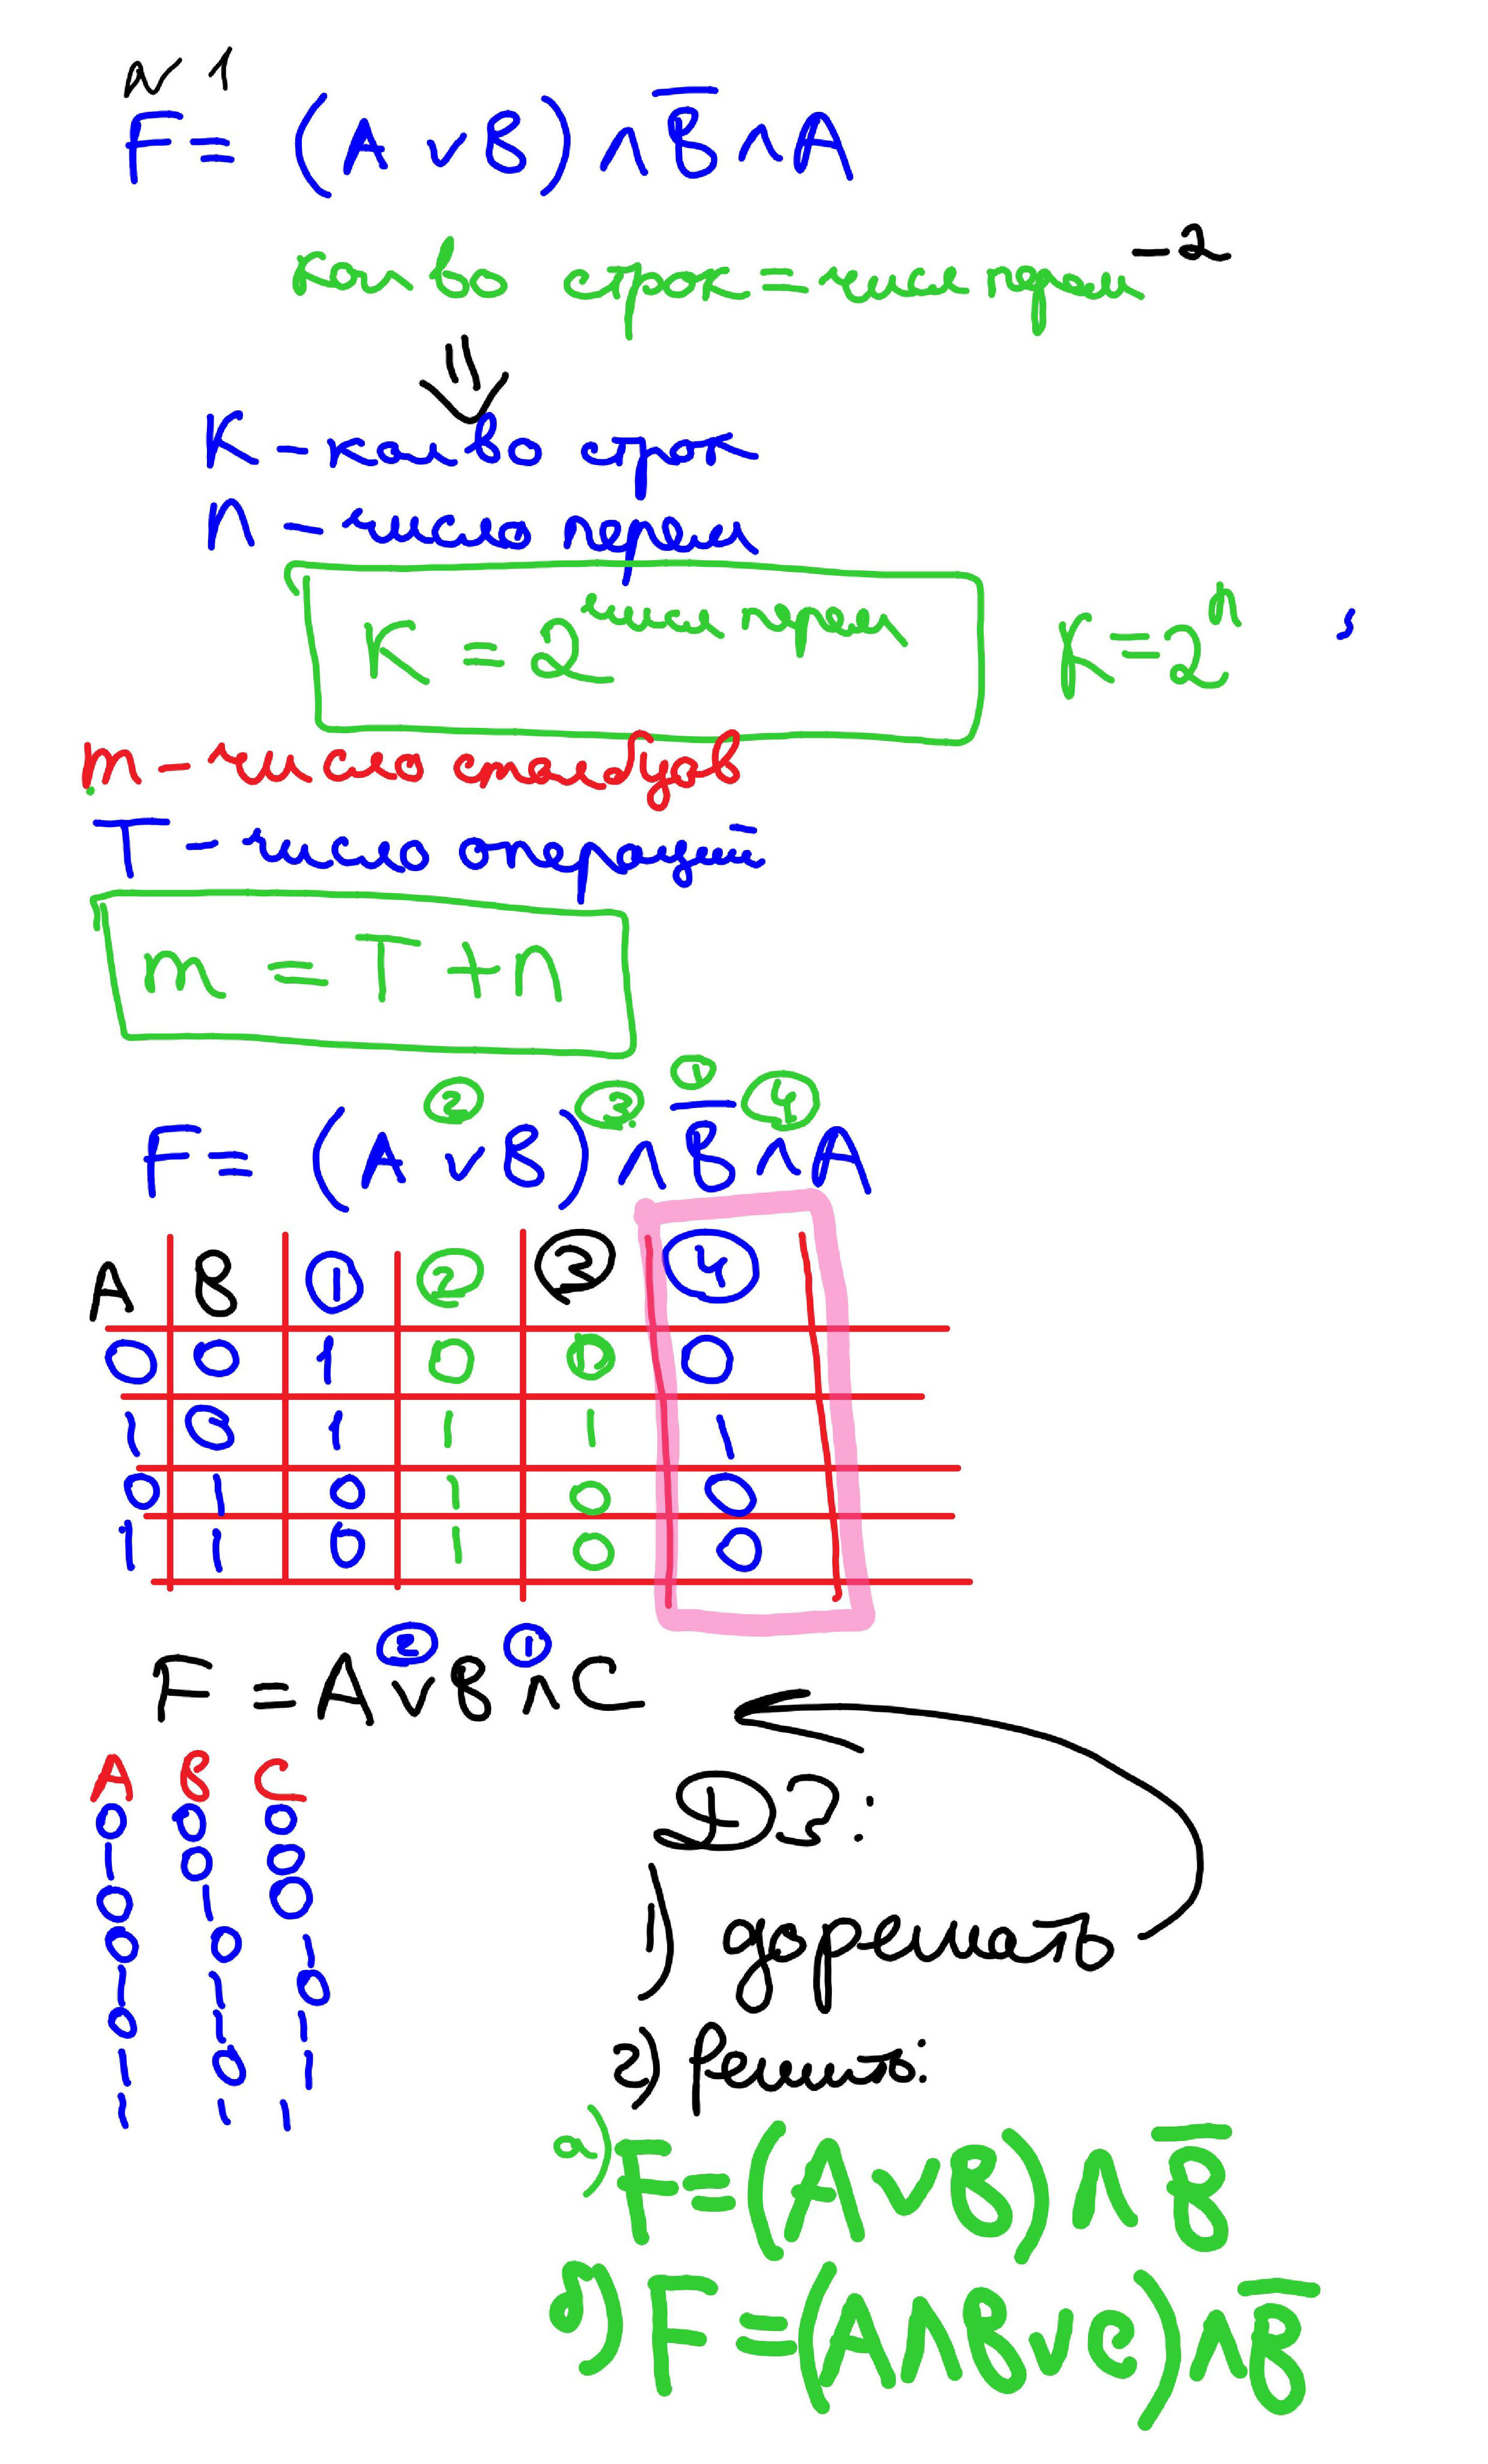 N 1
F = (A ∨ B) ∧ B̅ ∧ A
кол-во строк = числ перем - 2
K - кол-во строк
n - число перем
K = 2^числ перем K = 2^n
m - число столбцов
T - число операций
m = T + n
② ③ ① ④
F = (A ∨ B) ∧ B̅ ∧ A
A B ① ② ③ ④
0 0 1 0 0 0
1 0 1 1 1 1
0 1 0 1 0 0
1 1 0 1 0 0
② ①
F = A ∨ B ∧ C
A B C
0 0 0
1 0 0
0 1 0
0 0 1
1 1 0
0 1 1
1 0 1
1 1 1
ДЗ:
1) дорешать
2) Решить:
а) F = (A ∨ B) ∧ B̅
б) F = (A ∧ B ∨ C) ∧ B̅